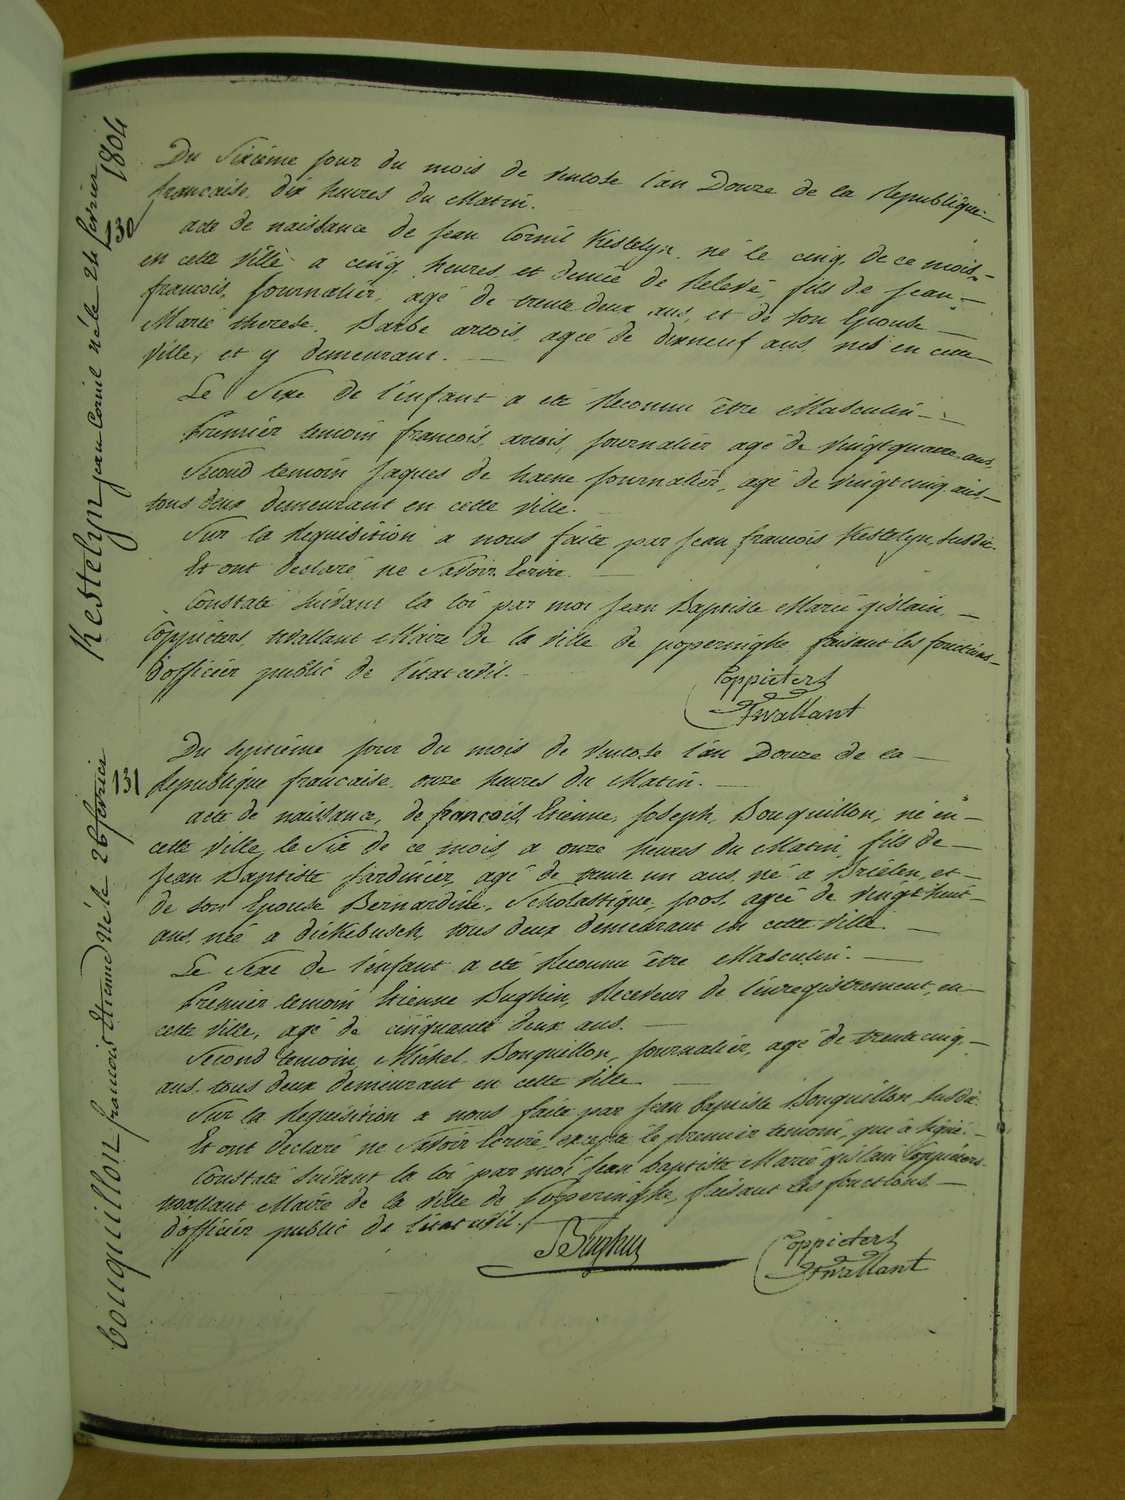 1804
130
Kestelyn jean Cornil né le 24 février
Du Sixième jour du mois de ventose l'an Douze de la Republique
francaise, dix heures du Matin.
acte de naissance de jean Cornil Kestelyn, né le cinq de ce mois,
en cette ville a cinq heures et demie de Relevé, fils de jean
francois, journalier, agé de trente deux ans, et de son Epouse
Marie therese Barbe artois, agée de dixneuf ans, nés en cette
ville, et y demeurant.
Le Sexe de l'enfant a eté Reconnu être Masculin.
Premier temoin francois artois, journalier agé de vingt quatre ans,
Second temoin jaques de haene journalier, agé de vingt cinq ans,
tous deux demeurant en cette ville.
Sur la Requisition a nous faite par jean francois Kestelyn, susdit.
Et ont declaré ne Savoir Ecrire.
Constaté suivant la loi par moi jean Baptiste Marie gislain
Coppieters, tvallant Maire de la ville de poperinghe, faisant les fonctions
d'officier public de l'état civil.
Coppieters
Tvallant
131
bouquillon francois Etienne né le 26 février
Du Septième jour du mois de ventose l'an Douze de la
Republique francaise, onze heures du Matin.
acte de naissance, de francois, Etienne, Joseph, Bouquillon, né en
cette ville, le Six de ce mois, a onze heures du Matin, fils de
jean Baptiste jardinier, agé de trente un ans, né a Brielen, et
de son Epouse Bernardine, Scholastique, joos, agée de vingt huit
ans, née a dickebusch, tous deux demeurant en cette ville.
Le Sexe de l'enfant a eté Reconnu être Masculin.
Premier temoin Etienne Bughin, Receveur de l'enregistrement, en
cette ville, agé de cinquante deux ans.
Second temoin, Michel Bouquillon, journalier, agé de trente cinq
ans, tous deux demeurant en cette ville.
Sur la Requisition a nous faite par jean baptiste Bouquillon, susdit.
Et ont declaré ne Savoir Ecrire, excepté le premier temoin, qui a signé.
Constaté suivant la loi par moi jean baptiste Marie gislain Coppieters
tvallant Maire de la ville de Poperinghe, faisant les fonctions
d'officier public de l'état civil.
Coppieters
Tvallant